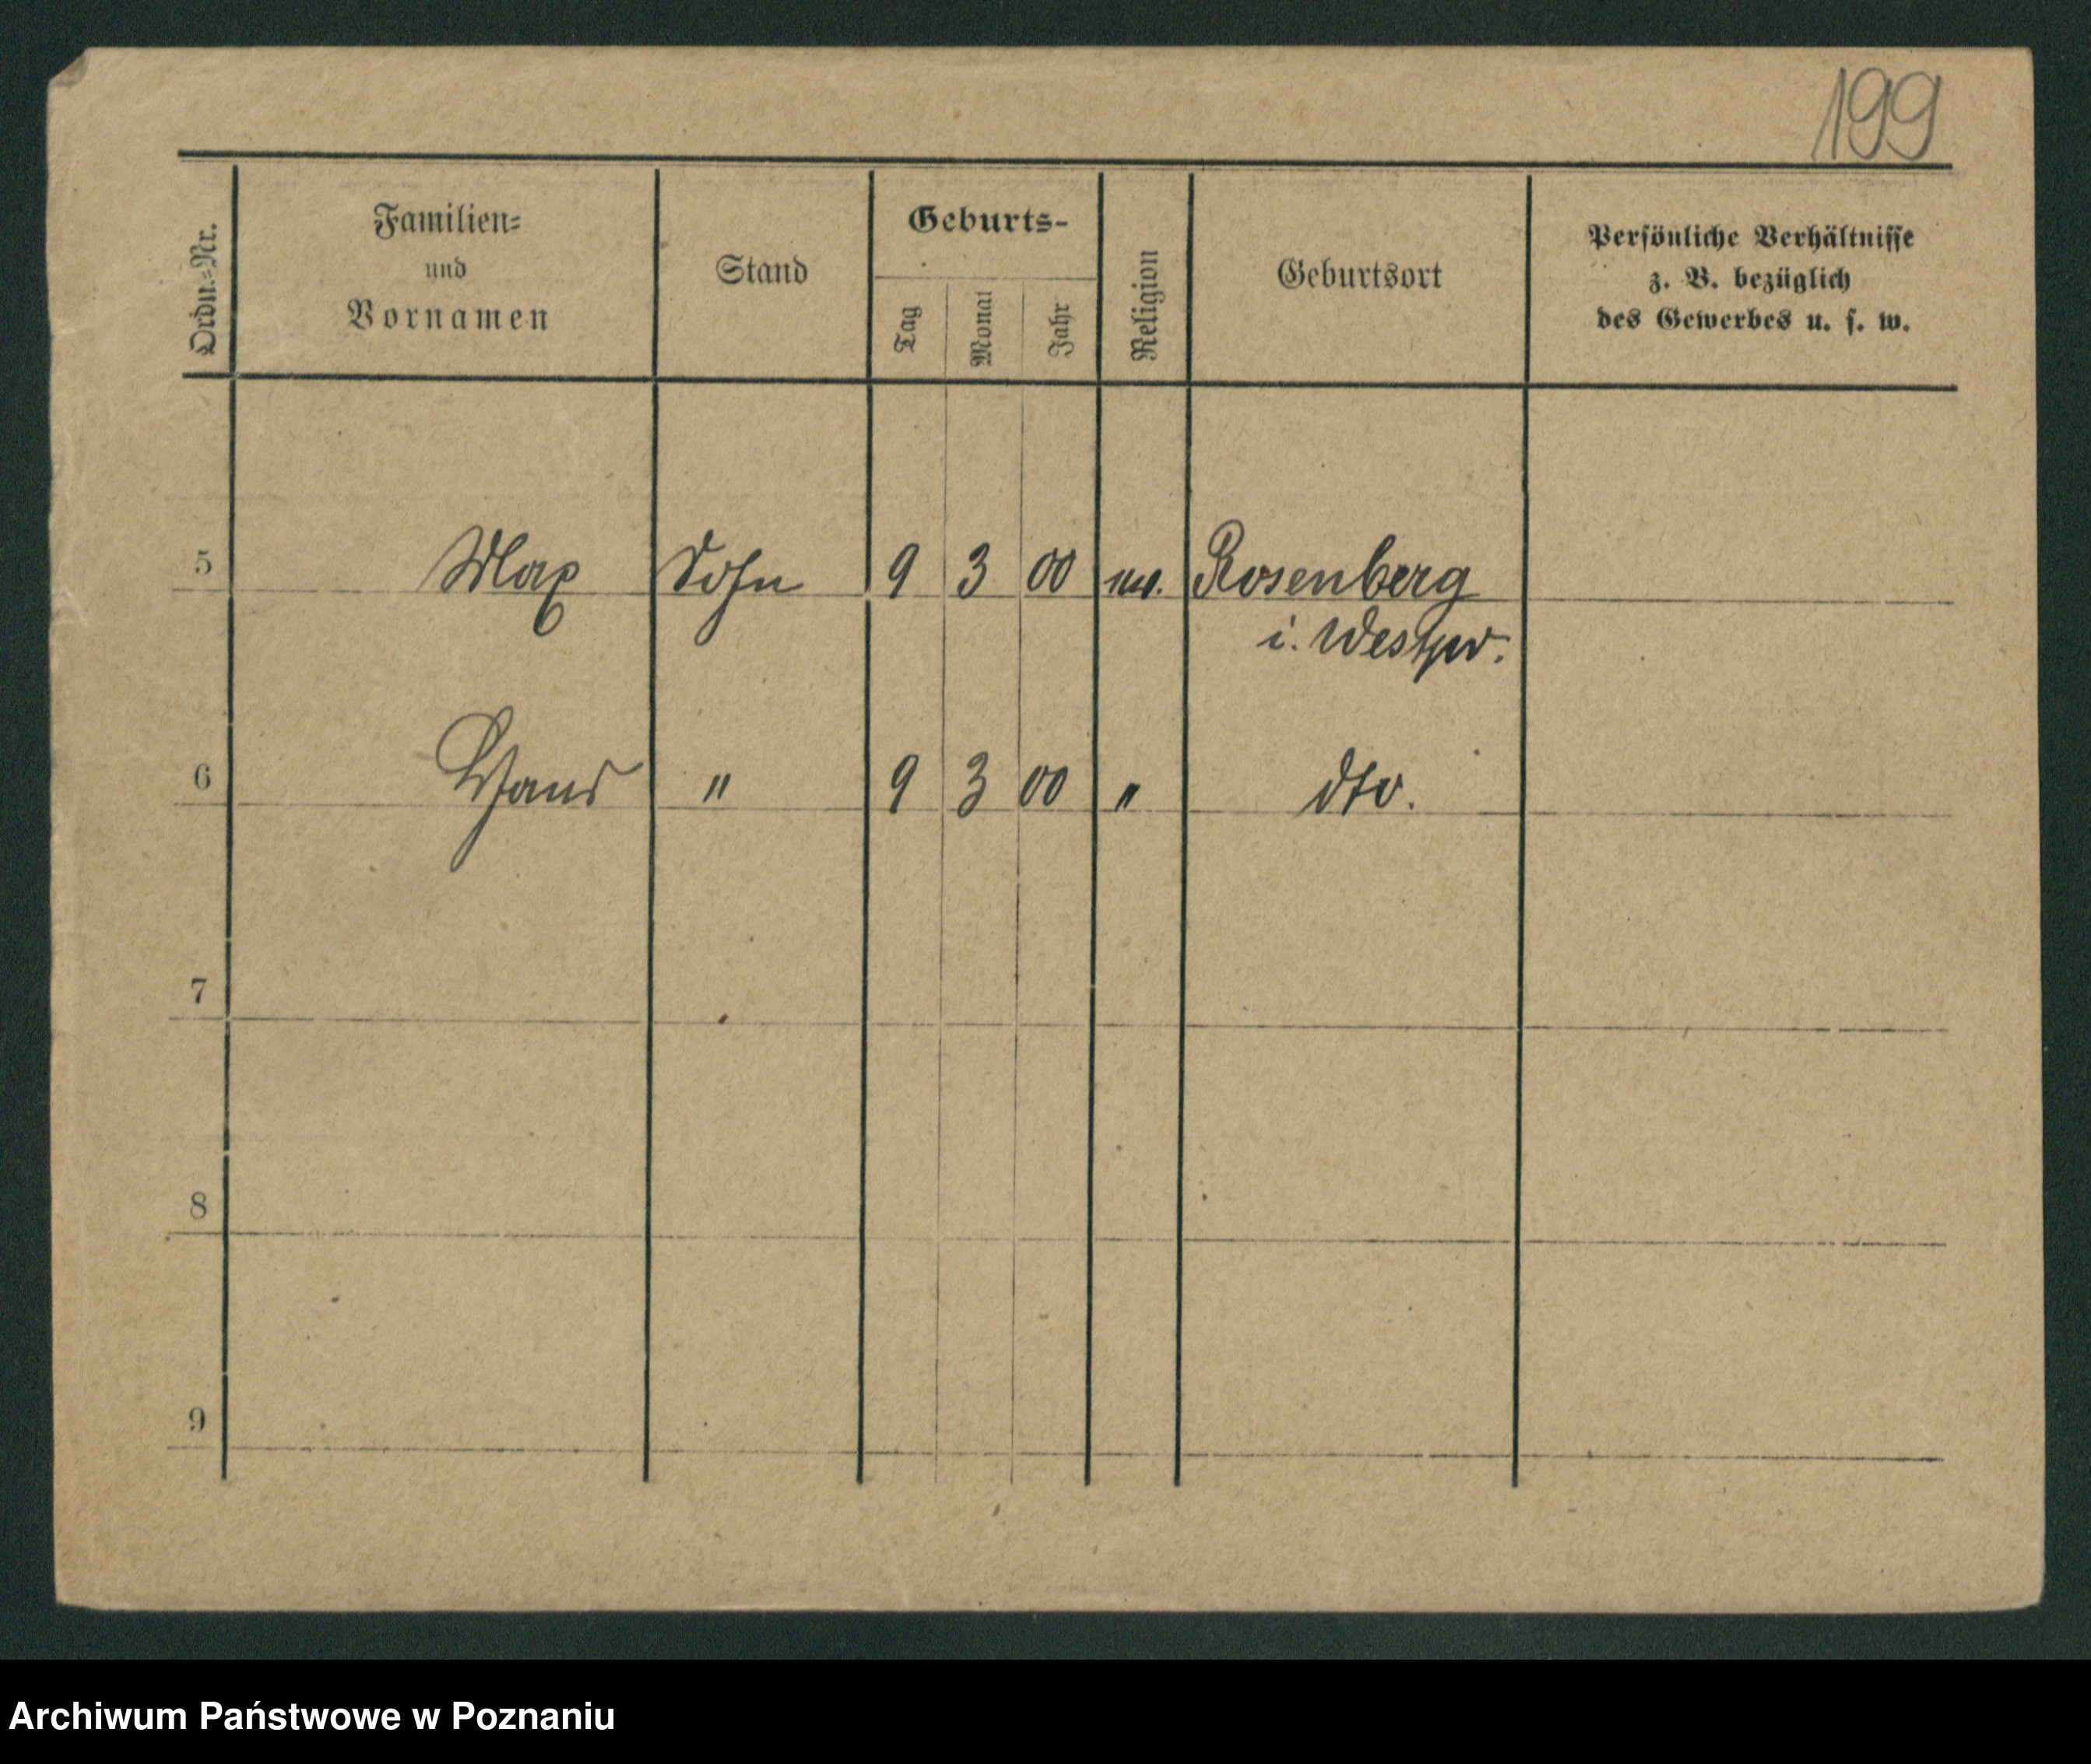 199
Ordn.=Nr. Familien= und Vornamen Stand Geburts- Tag Monat Jahr Religion Geburtsort Persönliche Verhältnisse z. B. bezüglich des Gewerbes u. s. w.
5 Max Sohn 9 3 00 Rosenberg
i. Westpr.
6 Hans " 9 3 00 " dto.
7
8
9
Archiwum Państwowe w Poznaniu